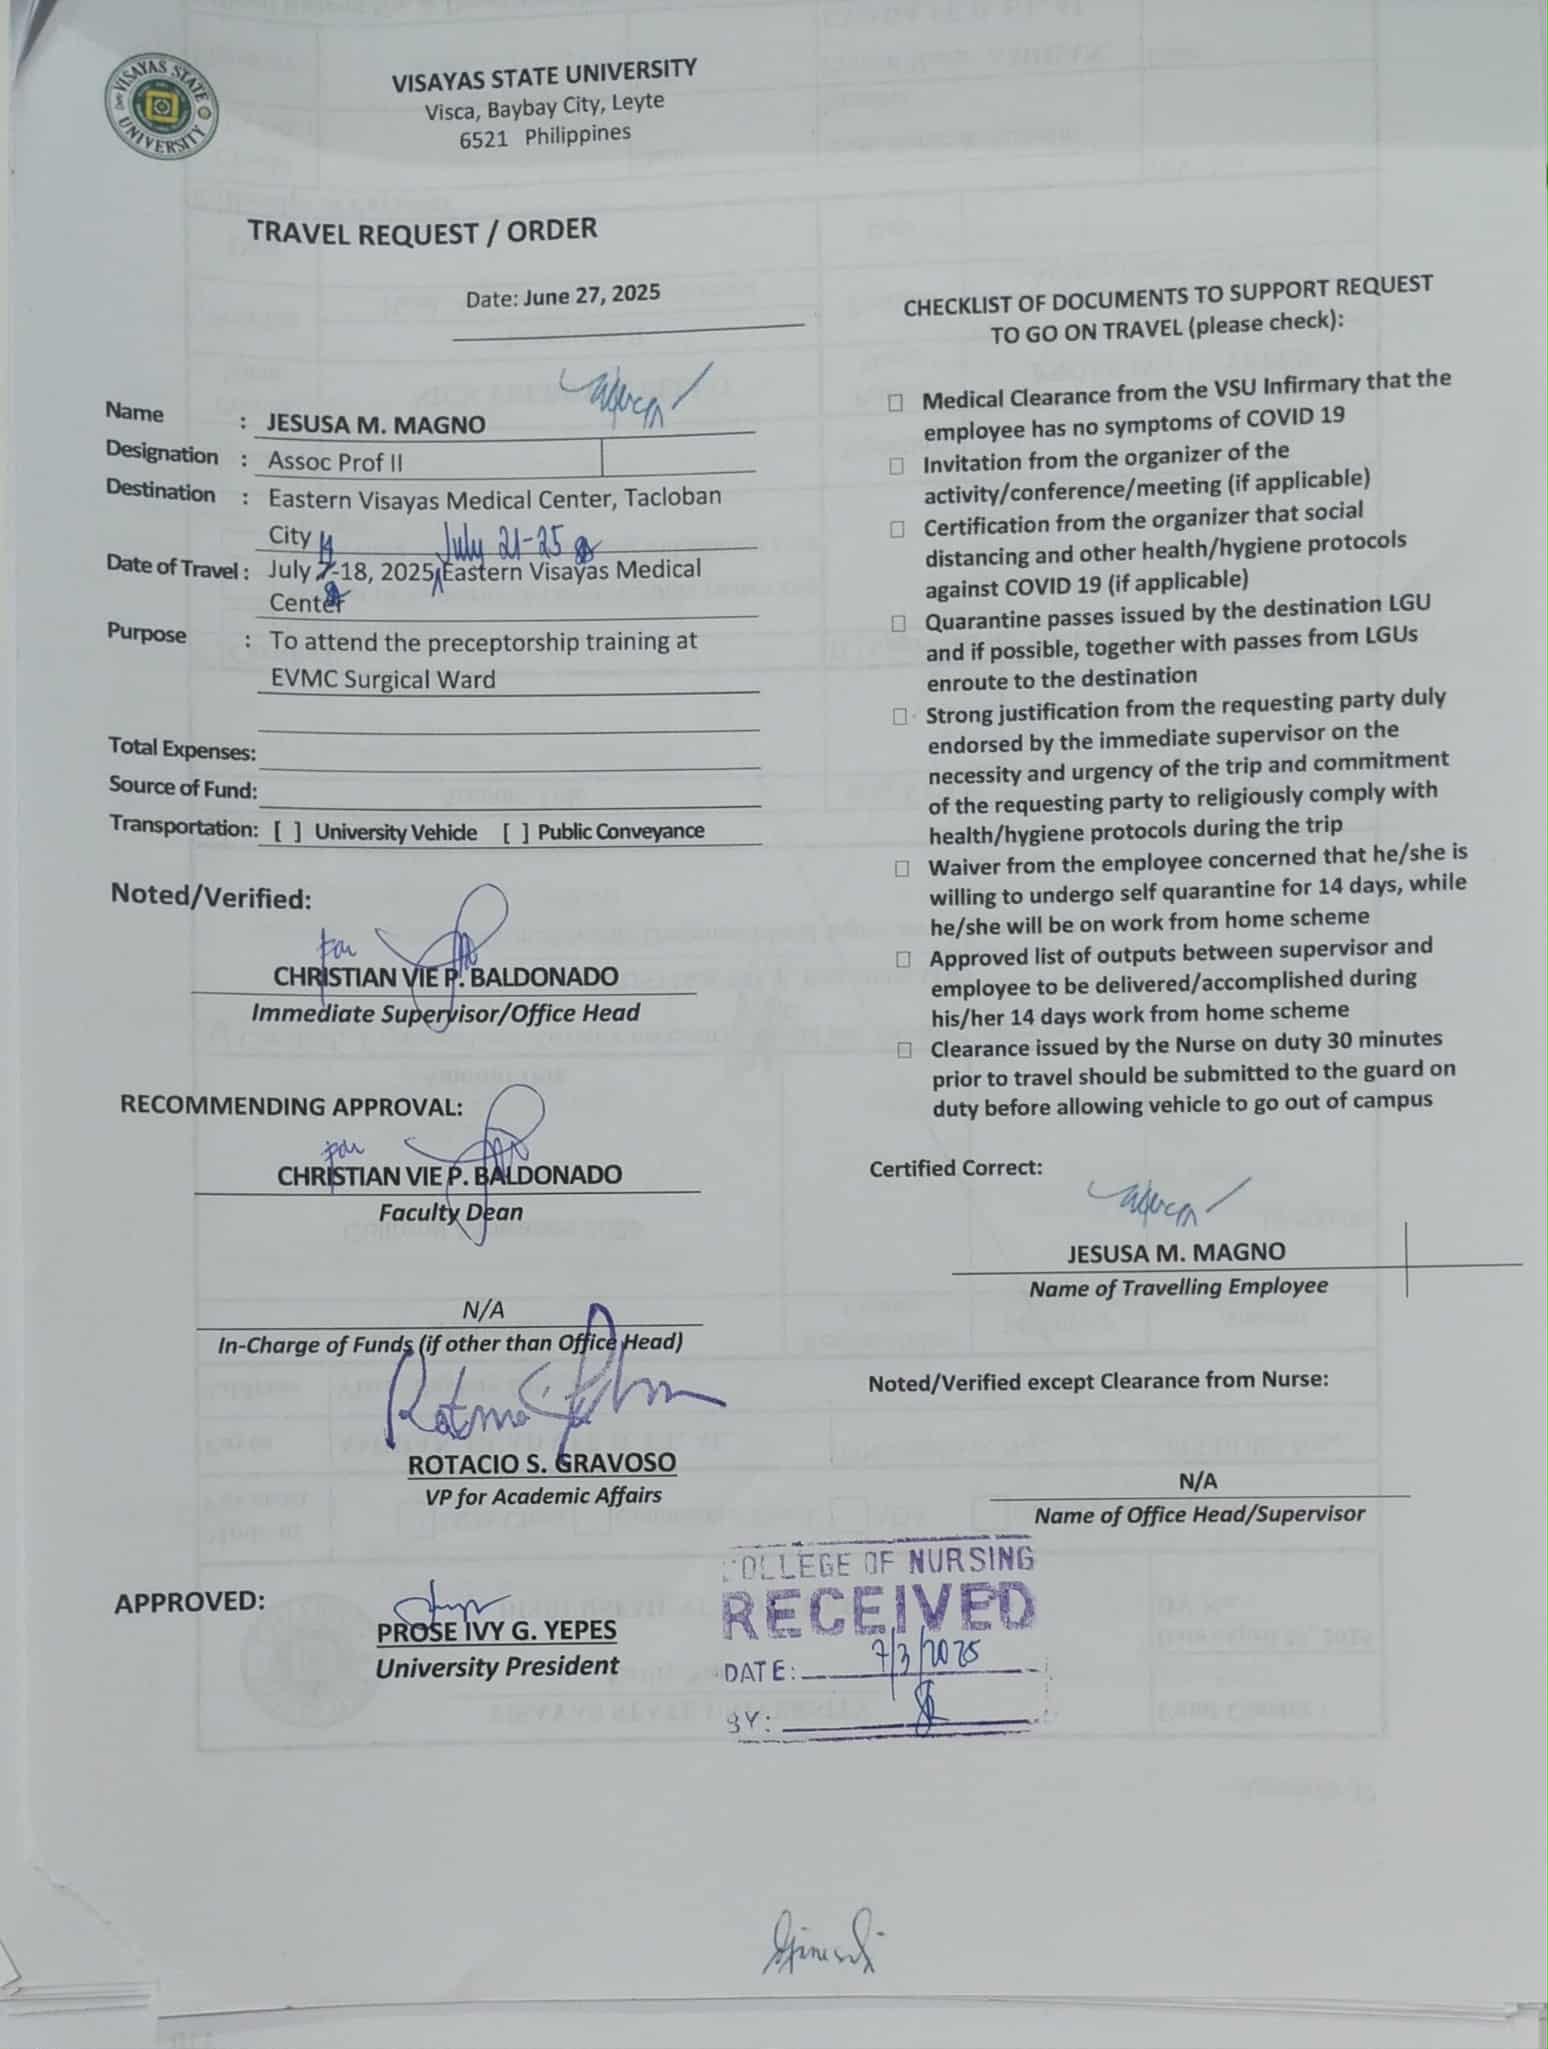 VISAYAS STATE UNIVERSITY
VISAYAS STATE UNIVERSITY
Visca, Baybay City, Leyte
6521 Philippines
TRAVEL REQUEST / ORDER
Date: June 27, 2025
Name : JESUSA M. MAGNO
Designation : Assoc Prof II
Destination : Eastern Visayas Medical Center, Tacloban
City
14 July 21-25
Date of Travel : July 7-18, 2025, Eastern Visayas Medical
Center
Purpose : To attend the preceptorship training at
EVMC Surgical Ward
Total Expenses:
Source of Fund:
Transportation: [ ] University Vehicle [ ] Public Conveyance
Noted/Verified:
for
CHRISTIAN VIE P. BALDONADO
Immediate Supervisor/Office Head
RECOMMENDING APPROVAL:
for
CHRISTIAN VIE P. BALDONADO
Faculty Dean
N/A
In-Charge of Funds (if other than Office Head)
ROTACIO S. GRAVOSO
VP for Academic Affairs
APPROVED:
PROSE IVY G. YEPES
University President
CHECKLIST OF DOCUMENTS TO SUPPORT REQUEST
TO GO ON TRAVEL (please check):
☐ Medical Clearance from the VSU Infirmary that the
employee has no symptoms of COVID 19
☐ Invitation from the organizer of the
activity/conference/meeting (if applicable)
☐ Certification from the organizer that social
distancing and other health/hygiene protocols
against COVID 19 (if applicable)
☐ Quarantine passes issued by the destination LGU
and if possible, together with passes from LGUs
enroute to the destination
☐ Strong justification from the requesting party duly
endorsed by the immediate supervisor on the
necessity and urgency of the trip and commitment
of the requesting party to religiously comply with
health/hygiene protocols during the trip
☐ Waiver from the employee concerned that he/she is
willing to undergo self quarantine for 14 days, while
he/she will be on work from home scheme
☐ Approved list of outputs between supervisor and
employee to be delivered/accomplished during
his/her 14 days work from home scheme
☐ Clearance issued by the Nurse on duty 30 minutes
prior to travel should be submitted to the guard on
duty before allowing vehicle to go out of campus
Certified Correct:
JESUSA M. MAGNO
Name of Travelling Employee
Noted/Verified except Clearance from Nurse:
N/A
Name of Office Head/Supervisor
COLLEGE OF NURSING
RECEIVED
DATE: 7/3/2025
BY: